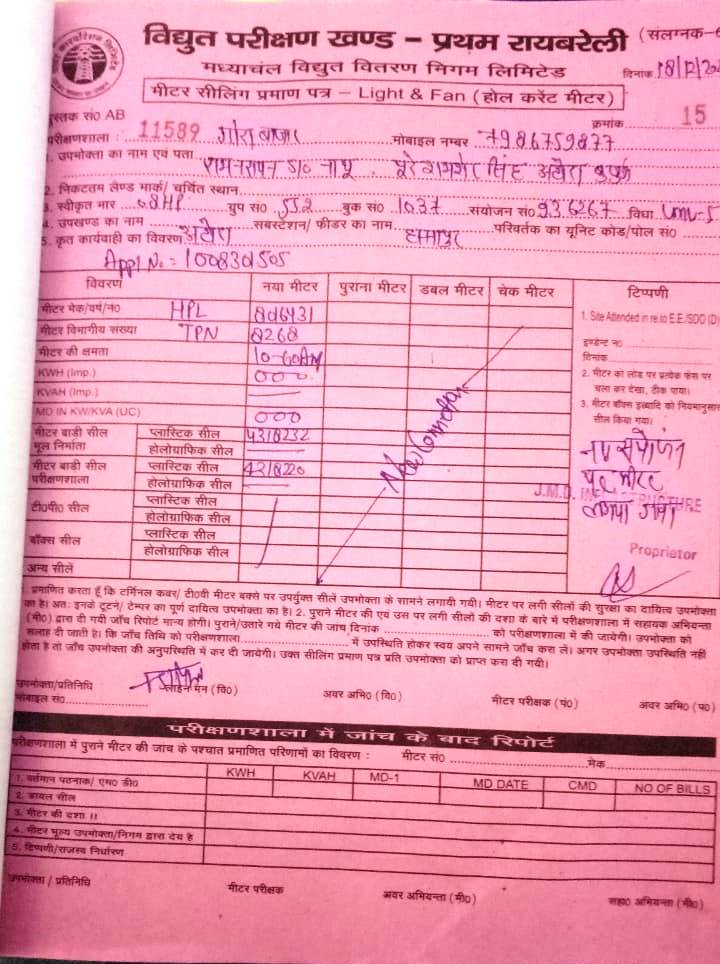 विद्युत परीक्षण खण्ड – प्रथम रायबरेली (संलग्नक-
मध्याचंल विद्युत वितरण निगम लिमिटेड
दिनांक 18/12/20
मीटर सीलिंग प्रमाण पत्र – Light & Fan (होल करेंट मीटर)
पुस्तक सं0 AB 11589 क्रमांक 15
परीक्षणशाला : गोराबाजार मोबाइल नम्बर 7986759877
1. उपभोक्ता का नाम एवं पता रामनरायन S/O नाथू
2. निकटतम लैण्ड मार्क/ चर्चित स्थान
3. स्वीकृत भार 08HP ग्रुप सं0 552 बुक सं0 1037 संयोजन सं0 936267 विधा LMV-5
4. उपखण्ड का नाम सबस्टेशन/ फीडर का नाम परिवर्तक का यूनिट कोड/पोल सं0
5. कृत कार्यवाही का विवरण
Appl No.: 1008301505
विवरण नया मीटर पुराना मीटर डबल मीटर चेक मीटर टिप्पणी
मीटर मेक/वर्ष/न0 HPL 806431
मीटर विभागीय संख्या TPN 8268
मीटर की क्षमता 10-60A
KWH (Imp.) 000
KVAH (Imp.)
MD IN KW/KVA (UC) 000
मीटर बाडी सील मूल निर्माता प्लास्टिक सील 4318232
होलोग्राफिक सील
मीटर बाडी सील परीक्षणशाला प्लास्टिक सील 4218220
होलोग्राफिक सील
टी0पी0 सील प्लास्टिक सील
होलोग्राफिक सील
बॉक्स सील प्लास्टिक सील
होलोग्राफिक सील
अन्य सीलें
New Connection
1. Site Attended in re.to E.E./SDO (D)
इण्डेन्ट न0
दिनांक
2. मीटर को लोड पर प्रत्येक फेस पर
चला कर देखा, ठीक पाया।
3. मीटर बॉक्स इत्यादि को नियमानुसार
सील किया गया।
नया संयोजन
पर मीटर
लगाया गया
J.M.D. INFRASTRUCTURE
Proprietor
प्रमाणित करता हूँ कि टर्मिनल कवर/ टी0वी मीटर बक्से पर उपर्युक्त सीलें उपभोक्ता के सामने लगायी गयी। मीटर पर लगी सीलों की सुरक्षा का दायित्व उपभोक्ता
का है। अतः इनके टूटने/ टेम्पर का पूर्ण दायित्व उपभोक्ता का है। 2. पुराने मीटर की एवं उस पर लगी सीलों की दशा के बारे में परीक्षणशाला में सहायक अभियन्ता
(मी0) द्वारा दी गयी जाँच रिपोर्ट मान्य होगी। पुराने/उतारे गये मीटर की जांच दिनांक को परीक्षणशाला में की जायेगी। उपभोक्ता को
सलाह दी जाती है। कि जाँच तिथि को परीक्षणशाला में उपस्थित होकर स्वयं अपने सामने जाँच करा ले। अगर उपभोक्ता उपस्थिति नहीं
होता है तो जाँच उपभोक्ता की अनुपस्थिति में कर दी जायेगी। उक्त सीलिंग प्रमाण पत्र प्रति उपभोक्ता को प्राप्त करा दी गयी।
उपभोक्ता/प्रतिनिधि लाईन मैन (वि0) अवर अभि0 (वि0) मीटर परीक्षक (प0) अवर अभि0 (प0)
मोबाइल सं0
परीक्षणशाला में जांच के बाद रिपोर्ट
परीक्षणशाला में पुराने मीटर की जांच के पश्चात प्रमाणित परिणामों का विवरण : मीटर सं0 मेक
KWH KVAH MD-1 MD DATE CMD NO OF BILLS
1. वर्तमान पठनाक/ एम0 डी0
2. डायल सील
3. मीटर की दशा ।।
4. मीटर मूल्य उपभोक्ता/निगम द्वारा देय है
5. टिप्पणी/राजस्व निर्धारण
उपभोक्ता / प्रतिनिधि मीटर परीक्षक अवर अभियन्ता (मी0) सहा0 अभियन्ता (मी0)